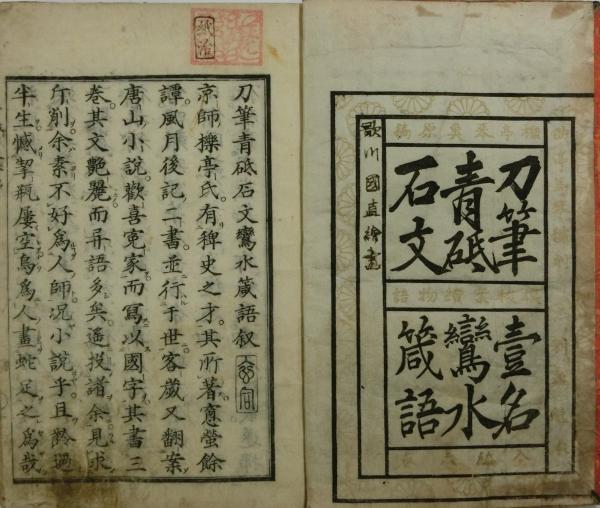 刀筆
青砥
石文
壹名
鸞水
箴語
歌川國直繪畫
紙治
刀筆青砥石文鸞水箴語叙
京師櫟亭氏有稗史之才其所著窻螢餘
譚風月後記二書並行于世客歲又翻案
唐山小說歡喜寃家而寫以國字其書三
卷其文艷麗而异語多矣遥投諸余見求
斤削余素不好爲人師况小說乎且齡過
半生慽挈瓶屢空烏爲人畫蛇足之爲哉